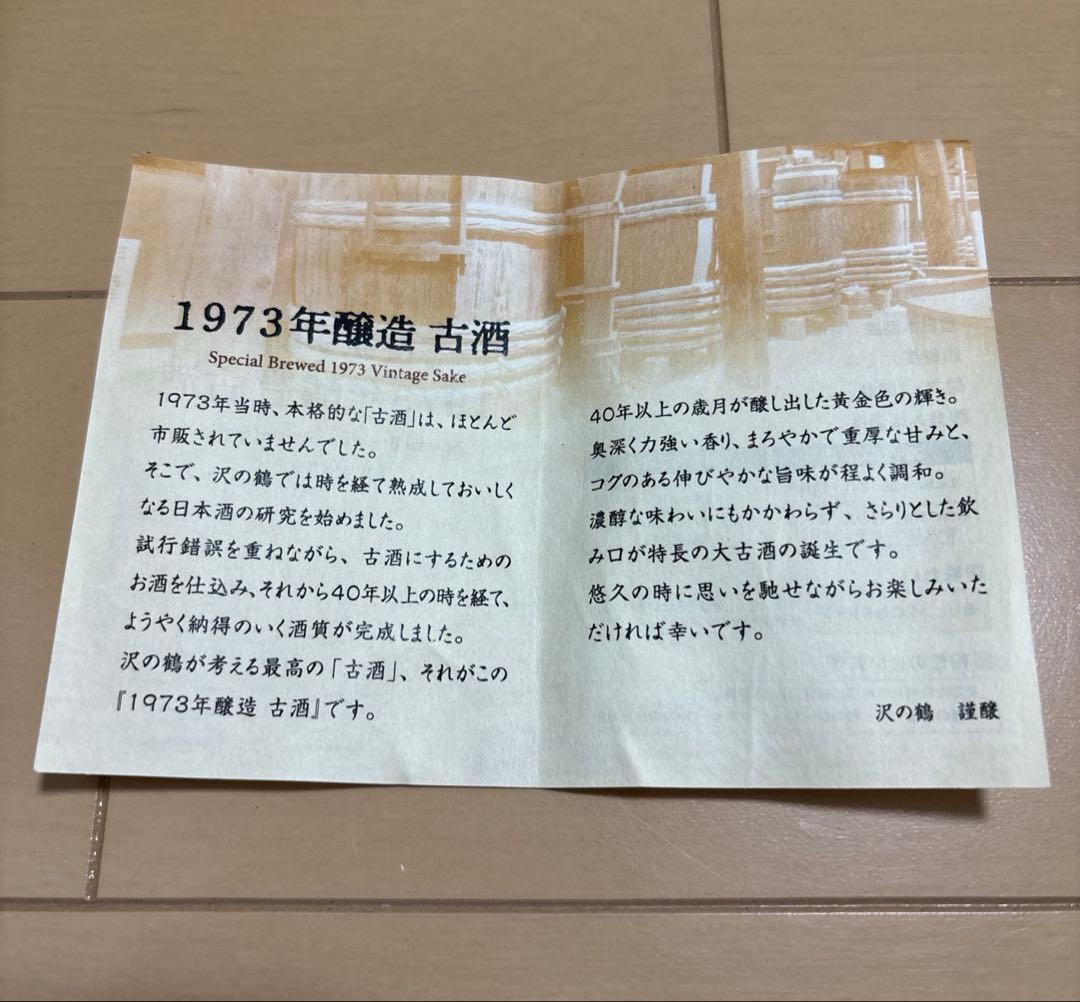 1973年醸造 古酒
Special Brewed 1973 Vintage Sake
1973年当時、本格的な｢古酒｣は、ほとんど
市販されていませんでした。
そこで、沢の鶴では時を経て熟成しておいしく
なる日本酒の研究を始めました。
試行錯誤を重ねながら、古酒にするための
お酒を仕込み、それから40年以上の時を経て、
ようやく納得のいく酒質が完成しました。
沢の鶴が考える最高の「古酒」、それがこの
『1973年醸造 古酒』です。
40年以上の歳月が醸し出した黄金色の輝き。
奥深く力強い香り、まろやかで重厚な甘みと、
コクのある伸びやかな旨味が程よく調和。
濃醇な味わいにもかかわらず、さらりとした飲
み口が特長の大古酒の誕生です。
悠久の時に思いを馳せながらお楽しみいた
だければ幸いです。
沢の鶴　謹醸